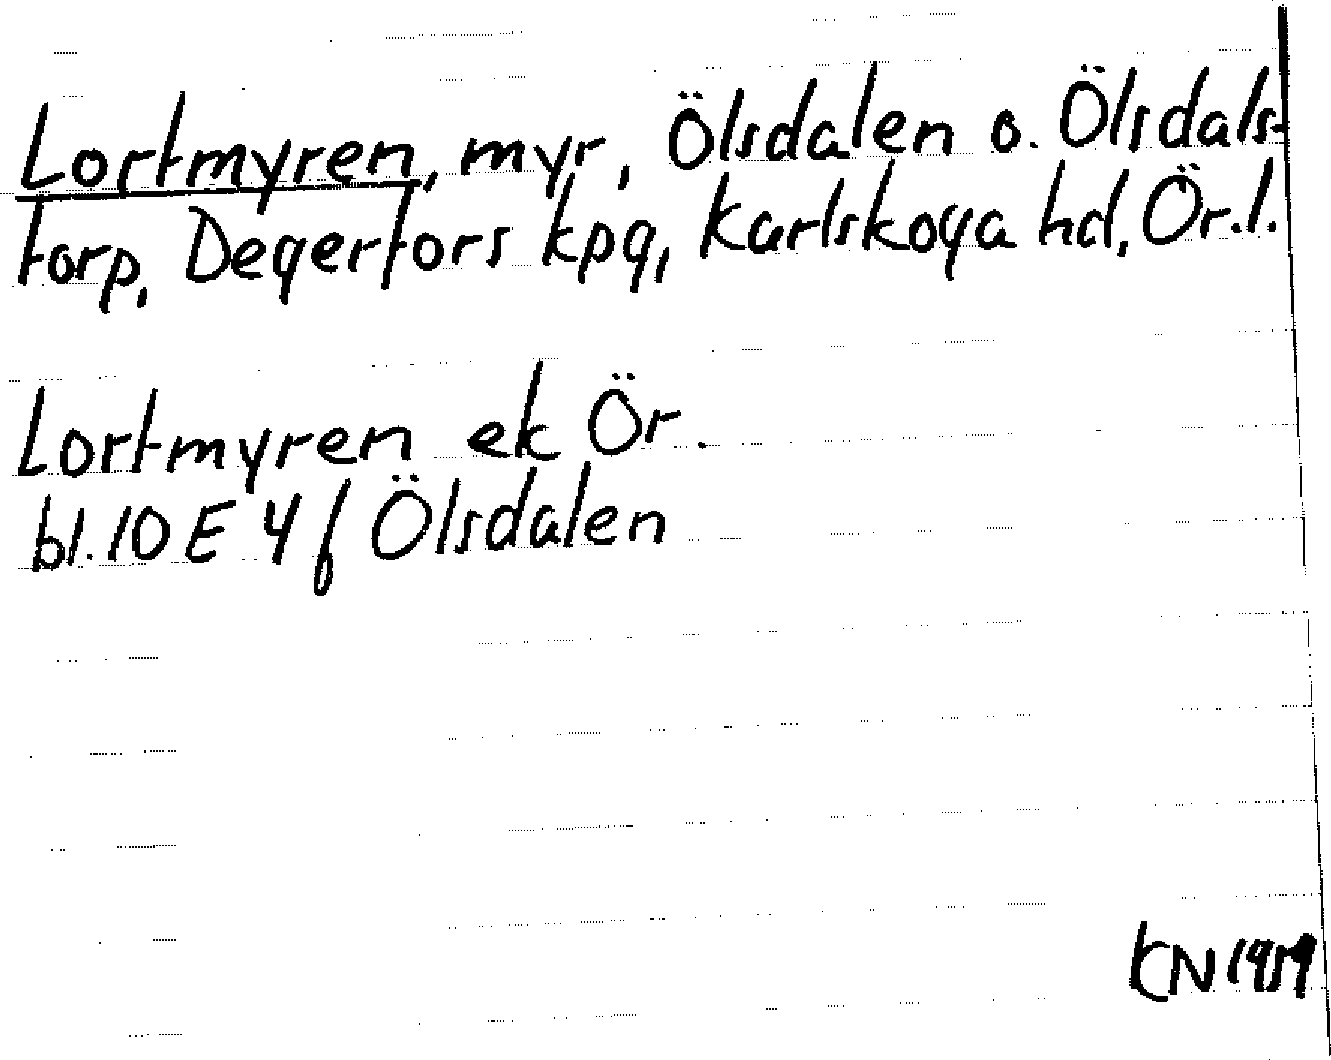 Lortmyren, myr, Ölsdalen o. Ölsdals-
torp, Degerfors kpg, Karlskoga hd, Ör.l.
Lortmyren ek Ör.
bl. 10 E 4 f Ölsdalen
KN 1959